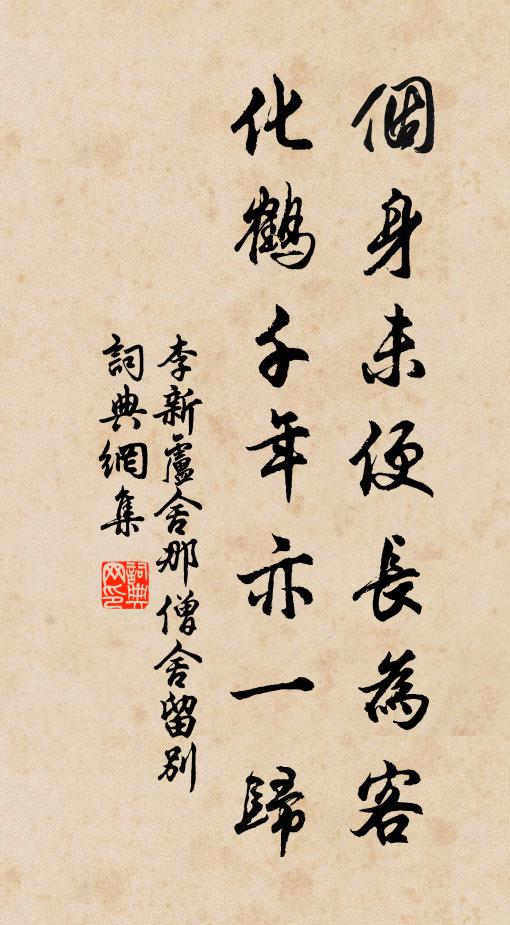 個身未便長為客
化鶴千年亦一歸
李新盧舍那僧舍留別
詞典網集
詞典网印